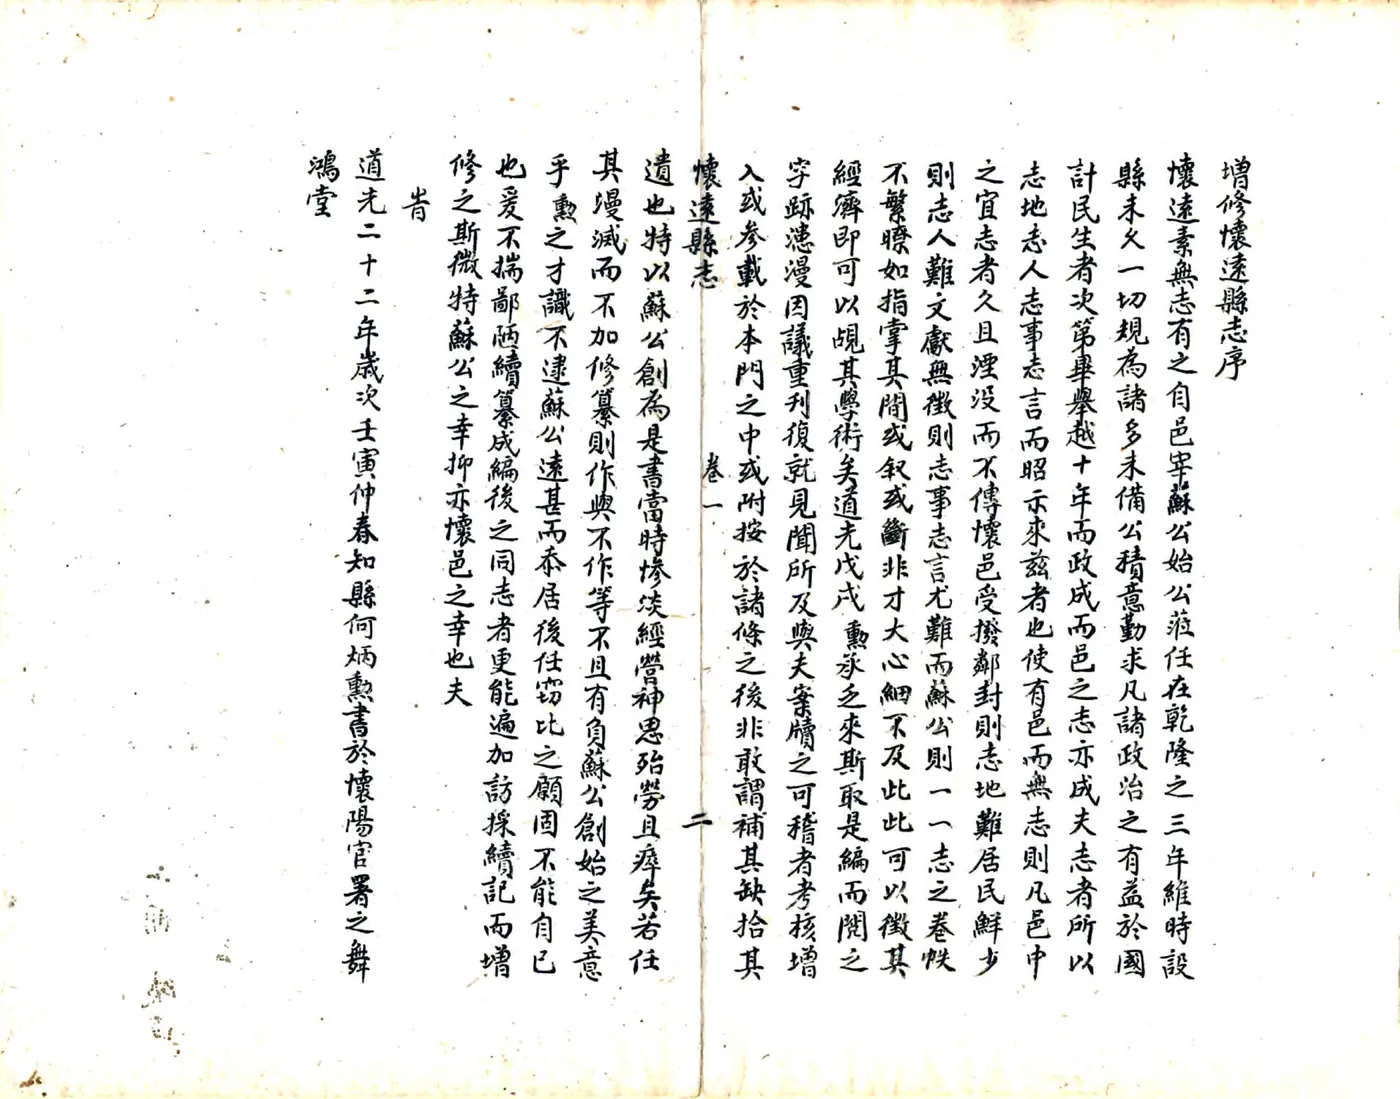 增修懷遠縣志序
懷遠素無志有之自邑宰蘇公始公蒞任在乾隆之三年維時設
縣未久一切規為諸多未備公積意勤求凡諸政治之有益於國
計民生者次第畢舉越十年而政成而邑之志亦成夫志者所以
志地志人志事志言而昭示來茲者也使有邑而無志則凡邑中
之宜志者久且湮没而不傳懷邑受撥鄰封則志地難居民鮮少
則志人難文獻無徵則志事志言尤難而蘇公則一一志之卷帙
不繁瞭如指掌其間或叙或斷非才大心細不及此此可以徵其
經濟即可以覘其學術矣道光戊戌勳承乏來斯取是編而閱之
字跡漶漫因議重刊復就見聞所及與夫案牘之可稽者考核增
入或參載於本門之中或附按於諸條之後非敢謂補其缺拾其
懷遠縣志 卷一 二
遺也特以蘇公創為是書當時慘淡經營神思殆勞且瘁矣若任
其漫滅而不加修纂則作與不作等不且有負蘇公創始之美意
乎勳之才識不逮蘇公遠甚而忝居後任窃比之願固不能自已
也爰不揣鄙陋續纂成編後之同志者更能遍加訪採續記而增
修之斯微特蘇公之幸抑亦懷邑之幸也夫
旹
道光二十二年歲次壬寅仲春知縣何炳勳書於懷陽官署之舞
鴻堂